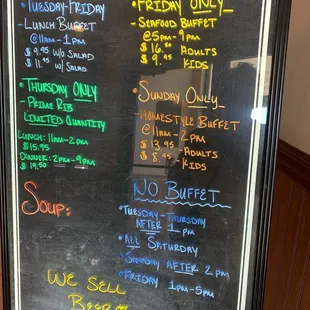 • Tuesday-Friday
- Lunch Buffet
@11am-1pm
$9.95 w/o Salad
$11.45 w/ Salad
• Thursday Only
- Prime Rib
Limited Quantity
Lunch: 11am-2pm
$15.95
Dinner: 2pm-9pm
$19.50
Soup:
We Sell
Beer
• Friday Only
- Seafood Buffet
@5pm-9pm
$16.50 Adults
$9.45 Kids
• Sunday Only
- Homestyle Buffet
@11am-2pm
$13.95 - Adults
$8.95 - Kids
No Buffet
• Tuesday-Thursday
After 1pm
• All Saturday
• Sunday After 2pm
• Friday 1pm-5pm